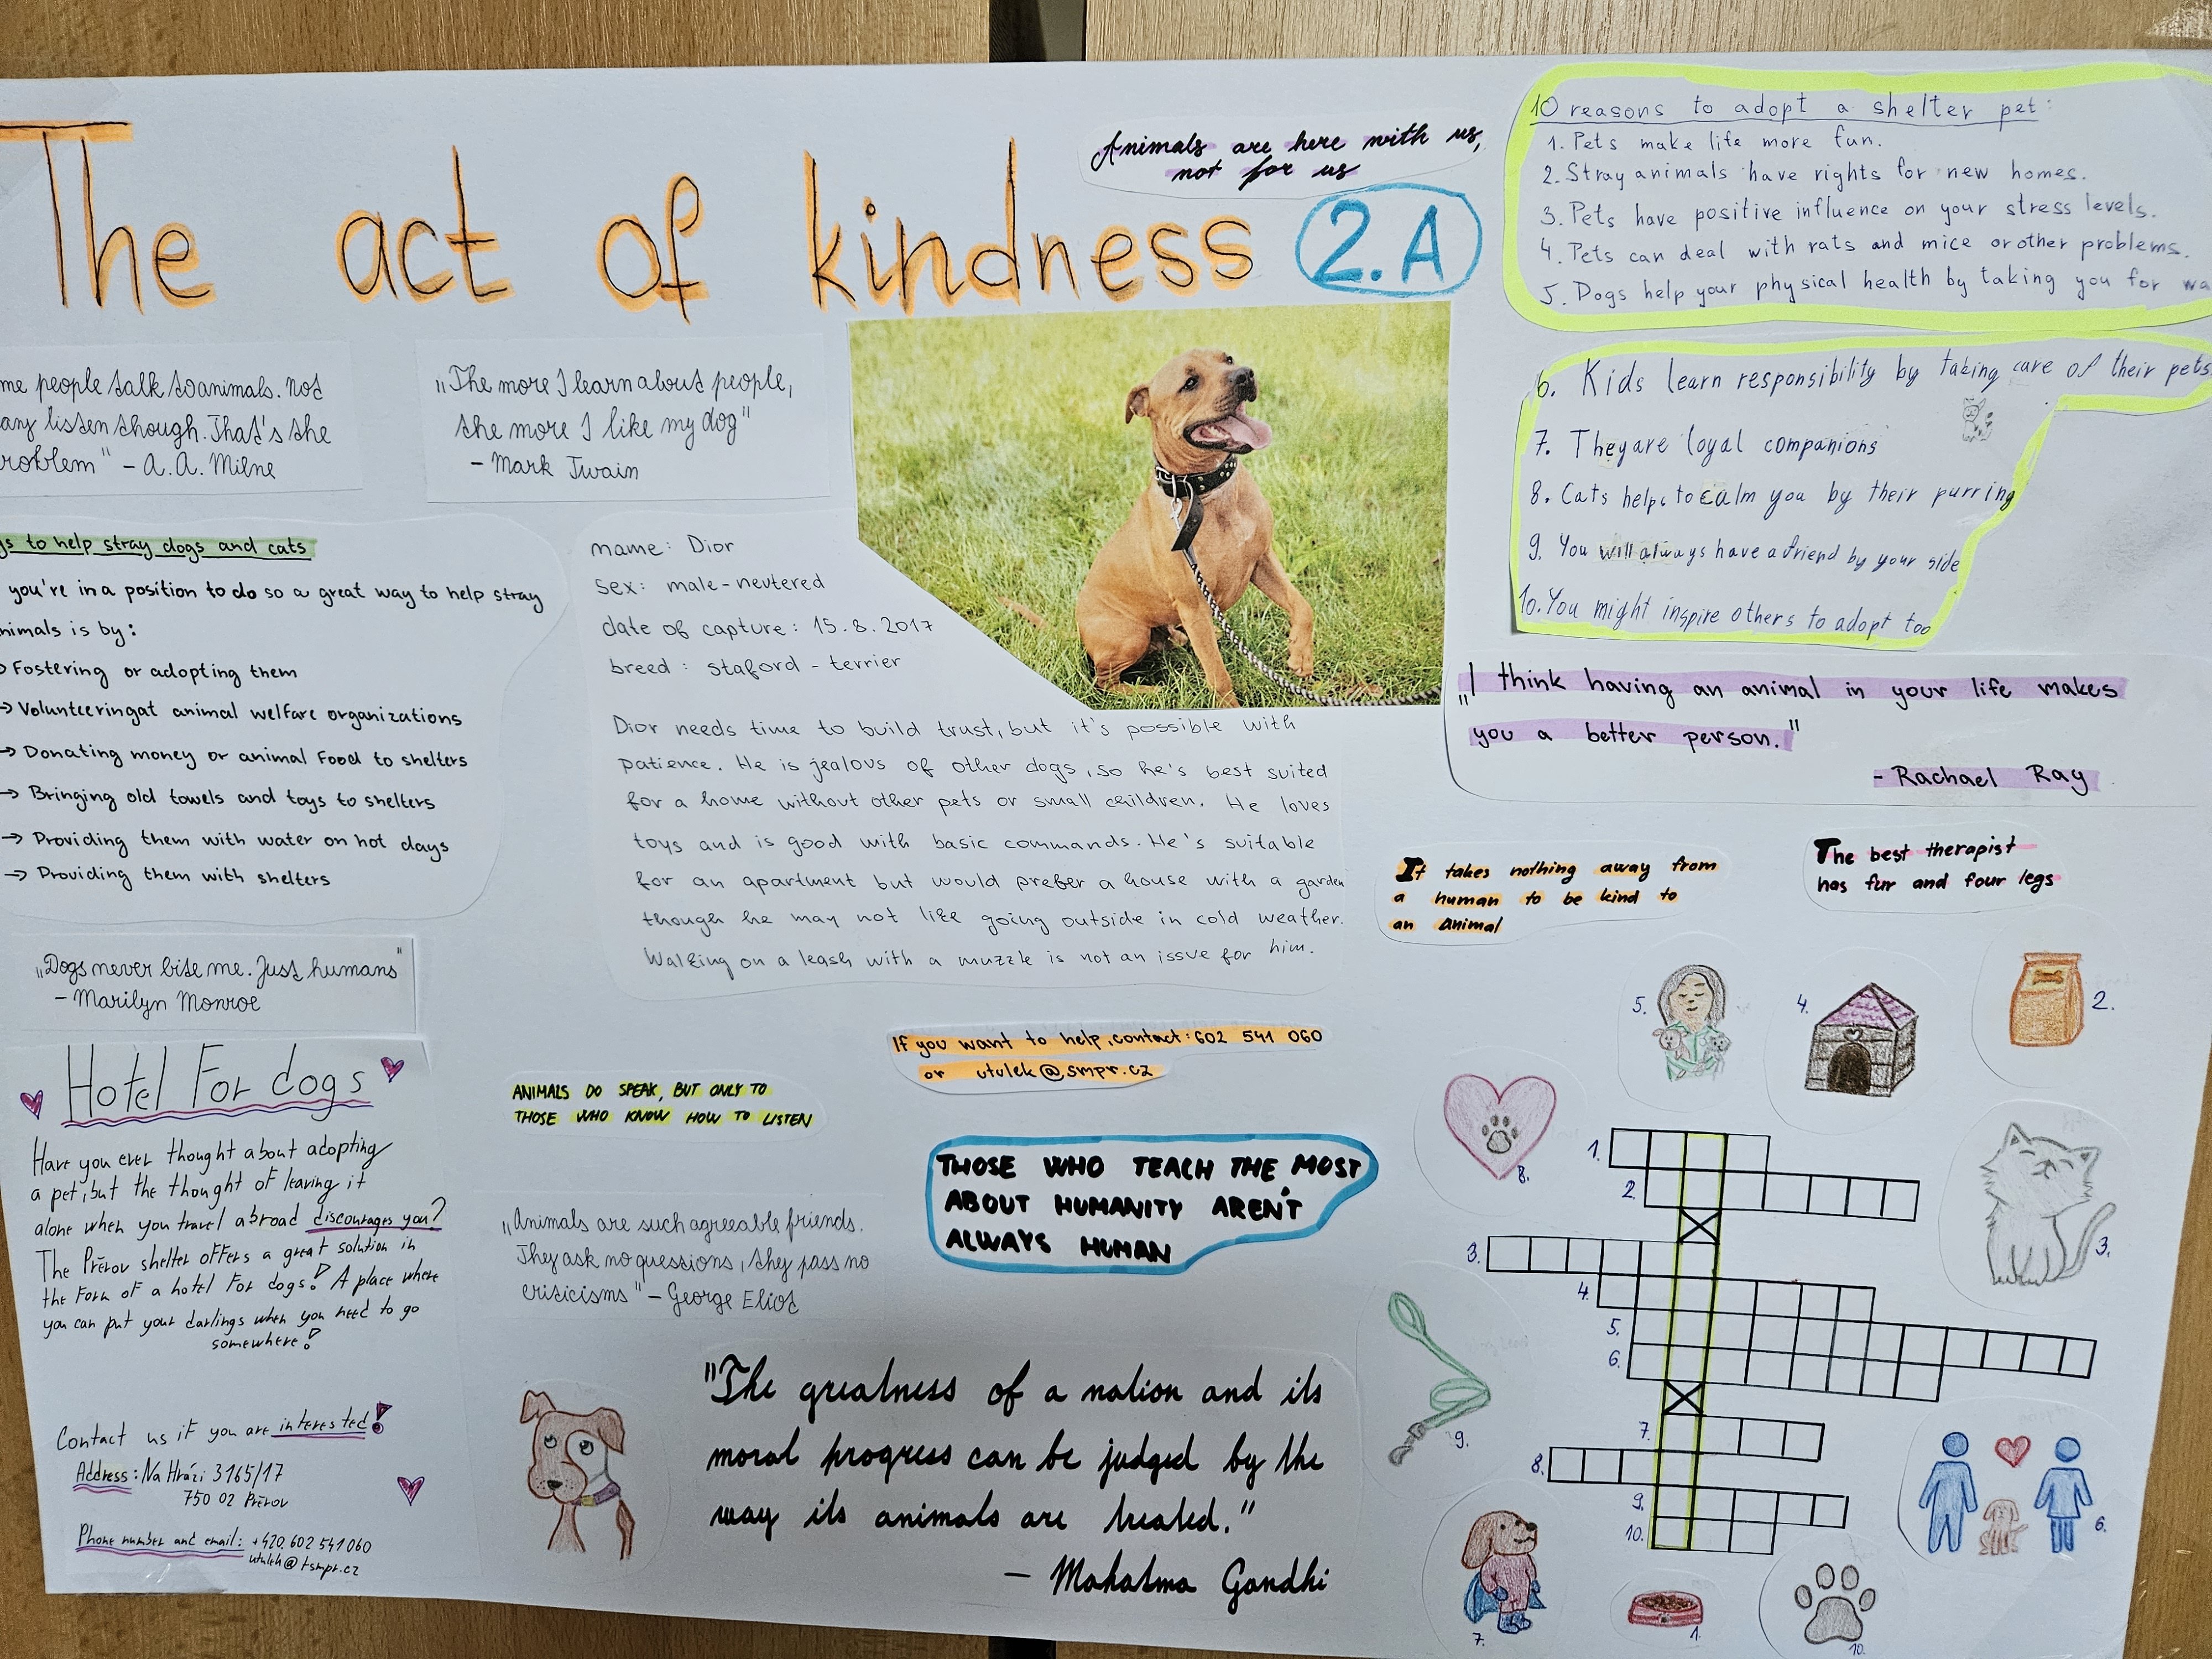 The act of kindness
2.A
Animals are here with us,
not for us
10 reasons to adopt a shelter pet:
1. Pets make life more fun.
2. Stray animals have rights for new homes.
3. Pets have positive influence on your stress levels.
4. Pets can deal with rats and mice or other problems.
5. Dogs help your physical health by taking you for wa
6. Kids learn responsibility by taking care of their pets
7. They are loyal companions
8. Cats help to calm you by their purring
9. You will always have a friend by your side
10. You might inspire others to adopt too
me people talk to animals. Not
any listen though. That's the
roblem" - A.A. Milne
„The more I learn about people,
the more I like my dog"
- Mark Twain
gs to help stray dogs and cats
you're in a position to do so a great way to help stray
nimals is by:
→ Fostering or adopting them
→ Volunteering at animal welfare organizations
→ Donating money or animal Food to shelters
→ Bringing old towels and toys to shelters
→ Providing them with water on hot days
→ Providing them with shelters
name: Dior
sex: male - neutered
date of capture: 15.8.2017
breed: staford - terrier
Dior needs time to build trust, but it's possible with
patience. He is jealous of other dogs, so he's best suited
for a home without other pets or small children. He loves
toys and is good with basic commands. He's suitable
for an apartment but would prefer a house with a garden
though he may not like going outside in cold weather.
Walking on a leash with a muzzle is not an issue for him.
„I think having an animal in your life makes
you a better person."
- Rachael Ray
It takes nothing away from
a human to be kind to
an animal
The best therapist
has fur and four legs
„Dogs never bite me. Just humans"
- Marilyn Monroe
Hotel For dogs
Have you ever thought about adopting
a pet, but the thought of leaving it
alone when you travel abroad discourages you?
The Přerov shelter offers a great solution in
the form of a hotel For dogs! A place where
you can put your darlings when you need to go
somewhere!
Contact us if you are interested!
Address: Na Hrázi 3165/17
750 02 Přerov
Phone number and email: +420 602 541 060
utulek@tsmpr.cz
If you want to help, contact: 602 541 060
or utulek@smpr.cz
ANIMALS DO SPEAK, BUT ONLY TO
THOSE WHO KNOW HOW TO LISTEN
THOSE WHO TEACH THE MOST
ABOUT HUMANITY AREN'T
ALWAYS HUMAN
„Animals are such agreeable friends.
They ask no questions, they pass no
criticisms" - George Eliot
"The greatness of a nation and its
moral progress can be judged by the
way its animals are treated."
- Mahatma Gandhi
5.
4.
2.
8.
3.
9.
6.
7.
1.
10.
1.
2.
3.
4.
5.
6.
7.
8.
9.
10.